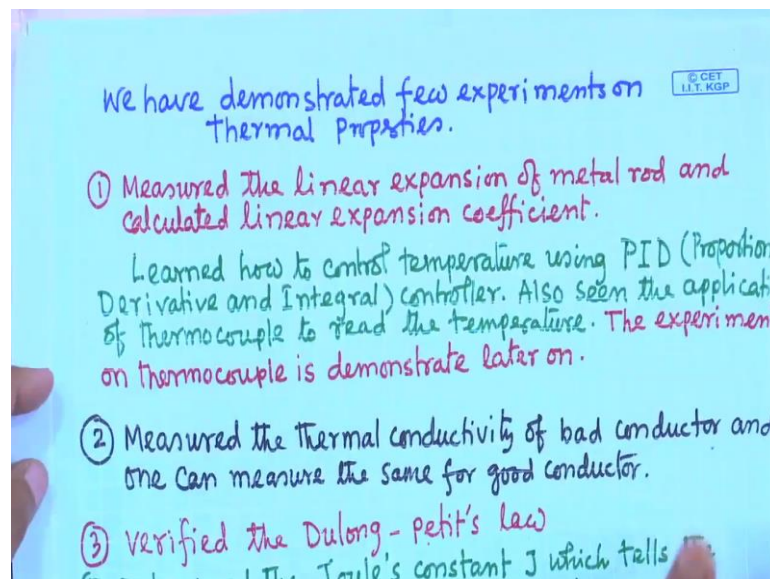 © CET
I.I.T. KGP
We have demonstrated few experiments on
thermal Propsties.
① Measured the linear expansion of metal rod and
calculated linear expansion coefficient.
Learned how to control temperature using PID (Proportion
Derivative and Integral) controller. Also seen the applicati
of thermocouple to read the temperature. The experimen
on thermocouple is demonstrate later on.
② Measured the thermal conductivity of bad conductor and
one can measure the same for good conductor.
③ verified the Dulong-petit's law
the Joule's constant J which tells